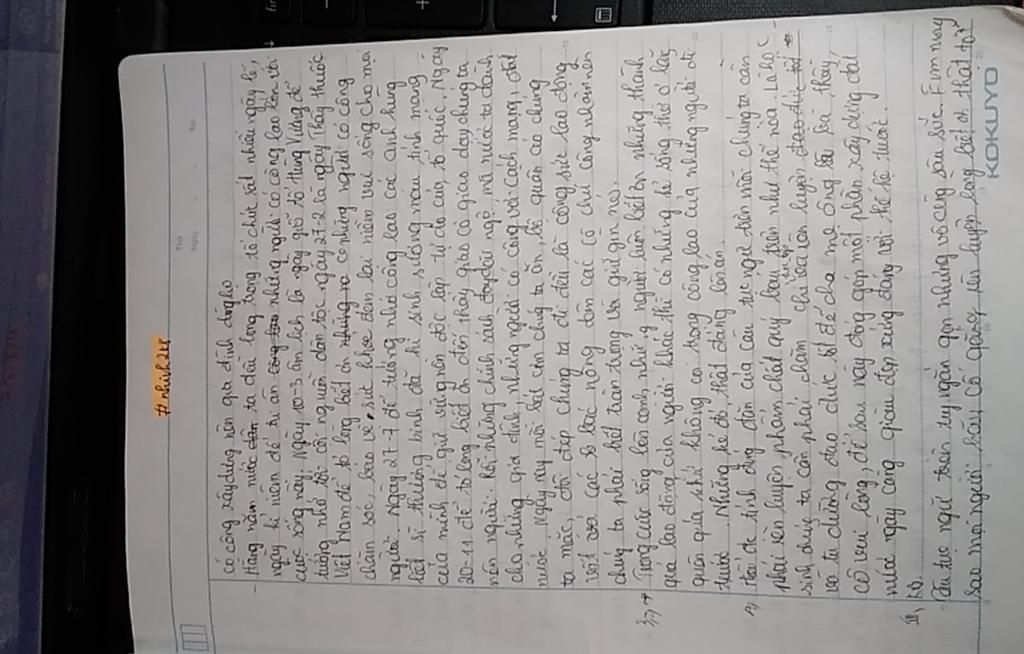 #nhinh2k8
có công xây dựng nên gia đình dòng họ
- Hàng năm nước ta đều long trọng tổ chức rất nhiều ngày lễ,
ngày kỉ niệm để tri ân những người có công lao lớn với
cuộc sống này. Ngày 10-3 âm lịch là ngày giỗ tổ Hùng Vương để
tưởng nhớ tới cội nguồn dân tộc, ngày 27-2 là ngày Thầy thuốc
Việt Nam để tỏ lòng biết ơn những người có công
chăm sóc, bảo vệ sức khỏe đem lại niềm vui sống cho mọi
người. Ngày 27-7 để tưởng nhớ công lao các anh hùng
liệt sĩ, thương binh đã hi sinh xương máu, tính mạng
của mình để giữ vững nền độc lập tự do của tổ quốc. Ngày
20-11 để tỏ lòng biết ơn đến thầy giáo cô giáo dạy chúng ta
nên người. Rồi những chính sách đãi ngộ mà nước ta dành
cho những gia đình những người có công với Cách mạng, đất
nước. Ngày nay mỗi bát cơm chúng ta ăn, bộ quần áo chúng
ta mặc, đôi dép chúng ta đi đều là công sức lao động
vất vả các cô bác nông dân các cô chú công nhân nên
chúng ta phải biết trân trọng và giữ gìn nó.
3, + Trong cuộc sống bên cạnh những người luôn biết ơn những thành
quả lao động của người khác thì có những kẻ sống thờ ơ lãng
quên quá khứ không coi trọng công lao của những người đi
trước. Những kẻ đó, thật đáng lên án.
4, Từ sự đúng đắn của câu tục ngữ trên mỗi chúng ta cần
phải rèn luyện phẩm chất quý báu trên như thế nào. Là học
sinh chúng ta cần phải chăm chỉ học tập rèn luyện
và tu dưỡng đạo đức tốt để cha mẹ ông bà, thầy,
cô vui lòng, để sau này đóng góp một phần xây dựng đất
nước ngày càng giàu đẹp xứng đáng với thế hệ trước.
III, KB.
- Câu tục ngữ trên tuy ngắn gọn nhưng vô cùng sâu sắc. Em mong
sao mọi người hãy cố gắng rèn luyện lòng biết ơn thật tốt.
KOKUYO